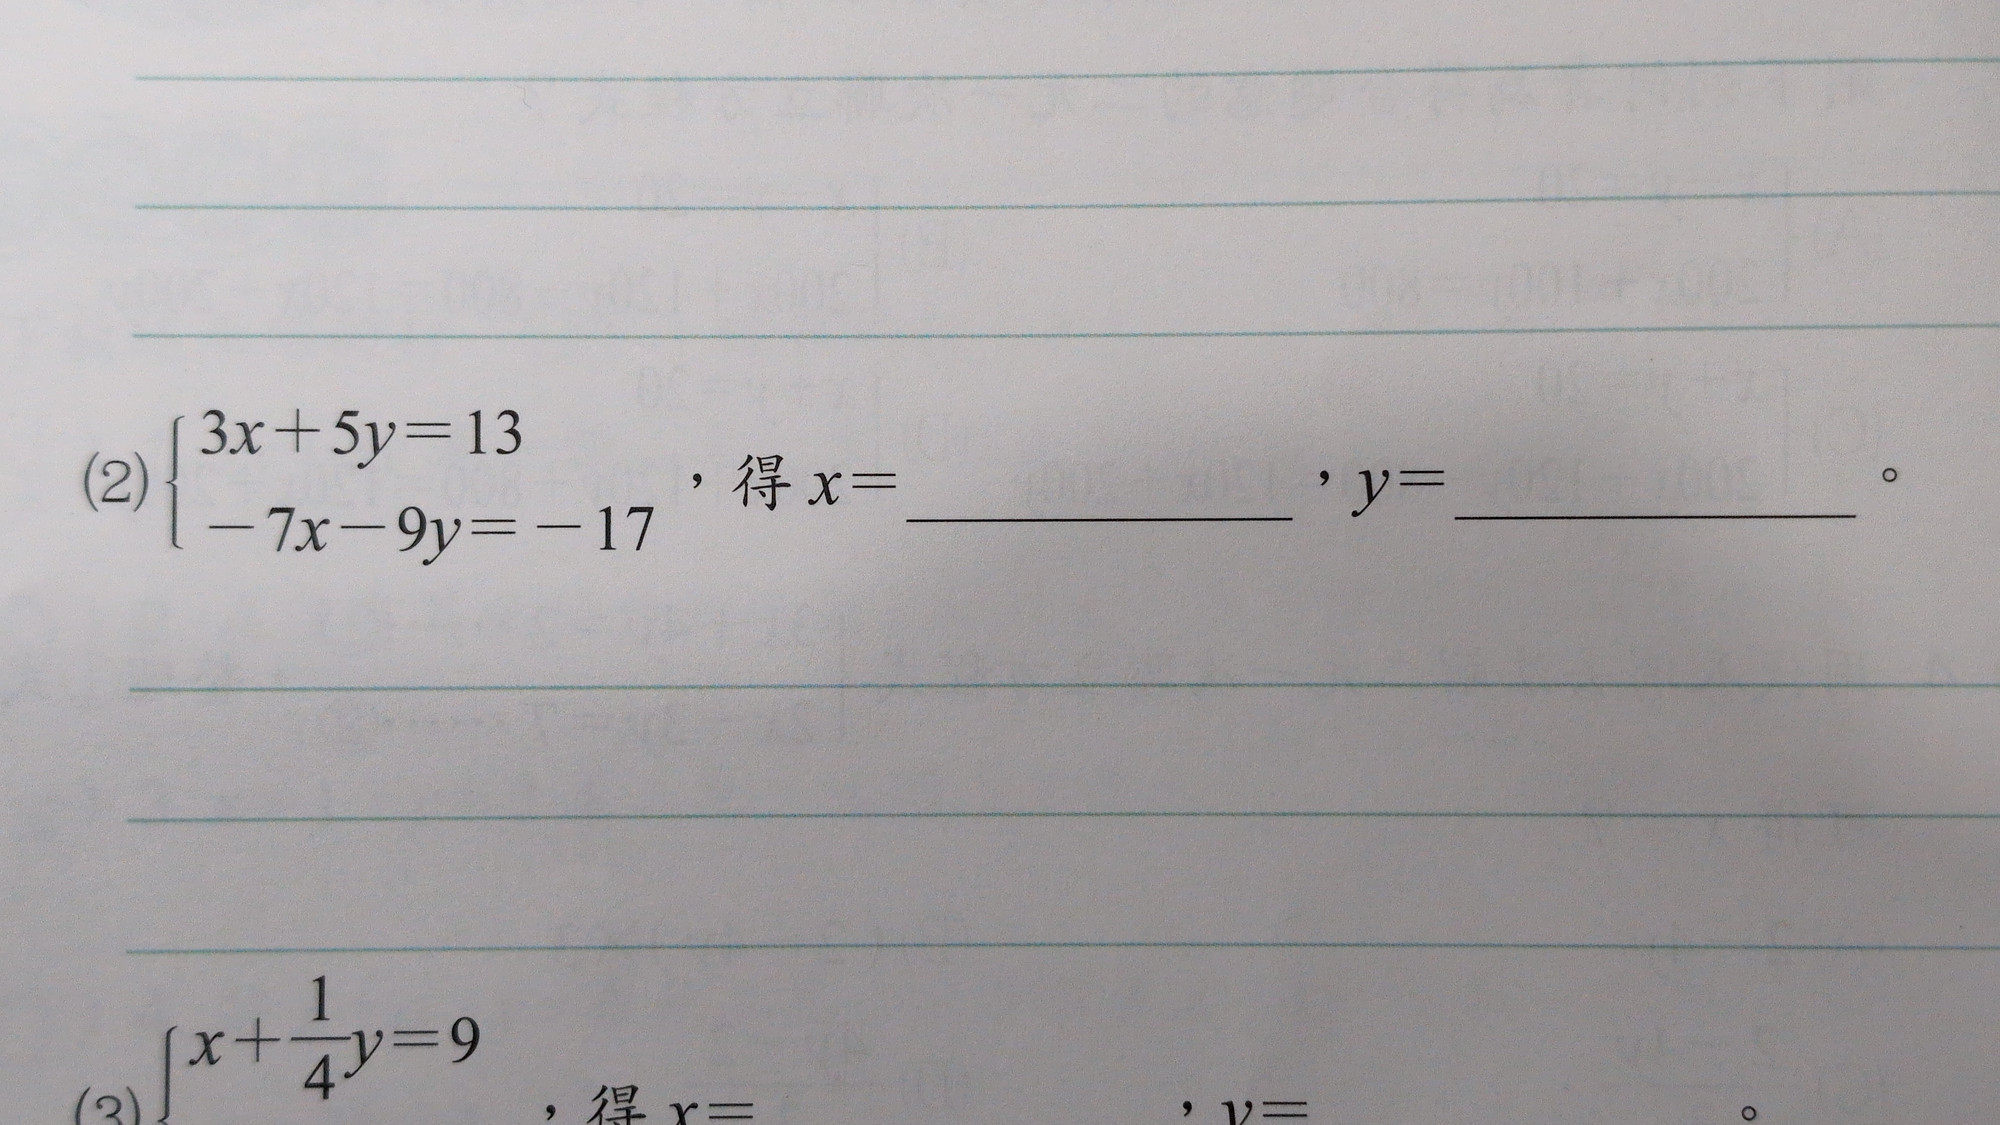 (2) { 3x+5y=13
-7x-9y=-17 ，得 x=________ ，y=________ 。
(3) { x+1/4y=9
，得 x= ，y= 。